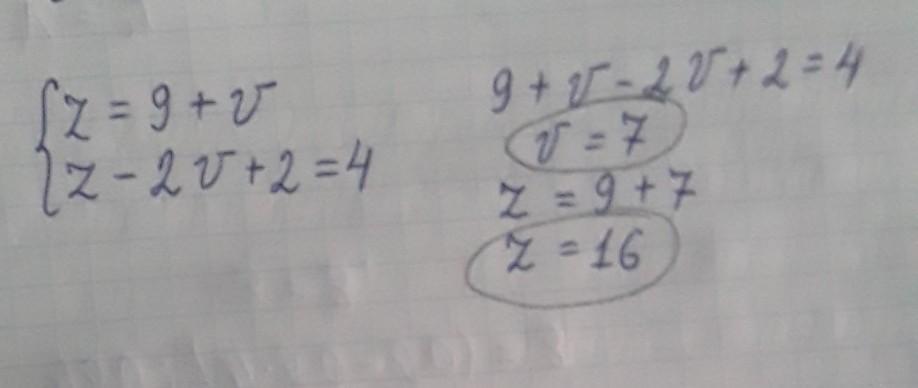 z = 9 + v
z - 2v + 2 = 4
9 + v - 2v + 2 = 4
v = 7
z = 9 + 7
z = 16